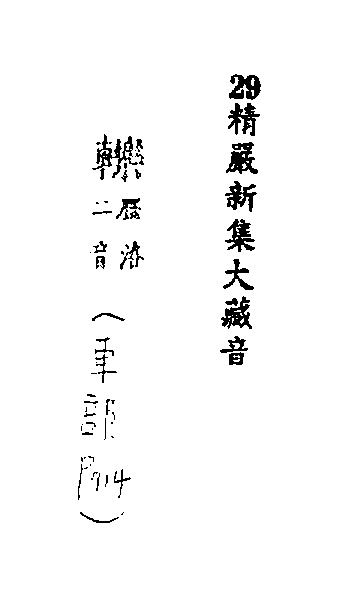 29精嚴新集大藏音
轢歷洛二音(車部P914)